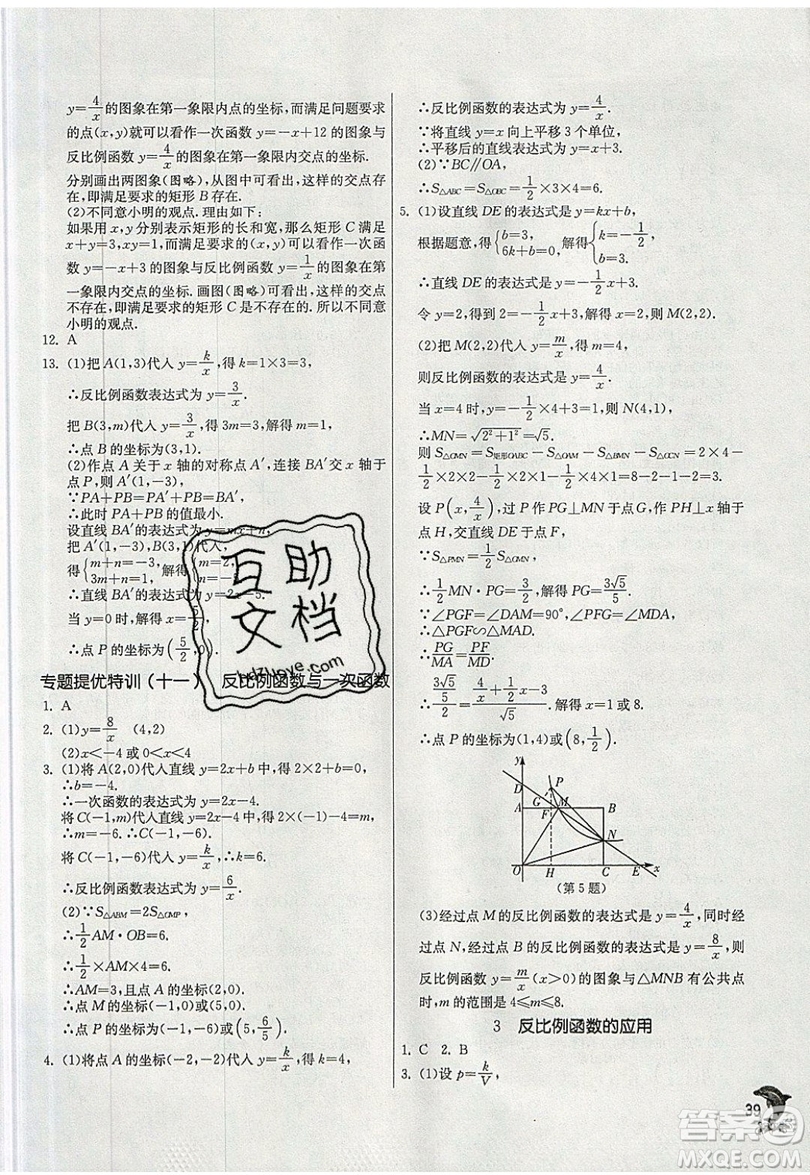 y=4/x的图象在第一象限内点的坐标,而满足问题要求
的点(x,y)就可以看作一次函数y=-x+12的图象与
反比例函数y=4/x的图象在第一象限内交点的坐标.
分别画出两图象(图略),从图中可看出,这样的交点存
在,即满足要求的矩形B存在.
(2)不同意小明的观点.理由如下:
如果用x,y分别表示矩形的长和宽,那么矩形C满足
x+y=3,xy=1,而满足要求的(x,y)可以看作一次函
数y=-x+3的图象与反比例函数y=1/x的图象在第
一象限内交点的坐标.画图(图略)可看出,这样的交点
不存在,即满足要求的矩形C是不存在的.所以不同意
小明的观点.
12. A
13. (1)把A(1,3)代入y=k/x,得k=1×3=3,
∴反比例函数表达式为y=3/x.
把B(3,m)代入y=3/x,解得m=1,
∴点B的坐标为(3,1).
(2)作点A关于x轴的对称点A′,连接BA′交x轴于
点P,则A′(1,-3).
∵PA+PB=PA′+PB=BA′,
∴此时PA+PB的值最小.
设直线BA′的表达式为y=mx+n,
把A′(1,-3),B(3,1)代入,
得{m+n=-3, 3m+n=1, 解得{m=2, n=-5.
∴直线BA′的表达式为y=2x-5.
当y=0时,2x-5=0,解得x=5/2,
∴点P的坐标为(5/2,0).
专题提优特训(十一) 反比例函数与一次函数
1. A
2. (1)y=8/x (4,2)
(2)x<-4或0<x<4
3. (1)将A(2,0)代入直线y=2x+b中,得2×2+b=0,
∴b=-4.
∴一次函数的表达式为y=2x-4.
将C(-1,m)代入直线y=2x-4中,得2×(-1)-4=m,
∴m=-6. ∴C(-1,-6).
将C(-1,-6)代入y=k/x,得-6=k/-1,∴k=6.
∴反比例函数的表达式为y=6/x.
(2)∵S△ABM=2S△OMP,
∴1/2AM·OB=6.
∴1/2×AM×4=6.
∴AM=3,且点A的坐标(2,0).
∴点M的坐标为(-1,0)或(5,0).
∴点P的坐标为(-1,-6)或(5,6/5).
4. (1)将点A的坐标(-2,-2)代入y=k/x,得k=4,
∴反比例函数的表达式为y=4/x.
∵将直线y=x向上平移3个单位,
∴平移后的直线表达式为y=x+3.
(2)∵BC∥OA,
∴S△ABC=S△OBC=1/2×3×4=6.
5. (1)设直线DE的表达式是y=kx+b,
根据题意,得{b=3, 6k+b=0, 解得{k=-1/2, b=3.
∴直线DE的表达式是y=-1/2x+3.
令y=2,得到2=-1/2x+3,解得x=2,则M(2,2).
(2)把M(2,2)代入y=m/x,得m=4.
则反比例函数的表达式是y=4/x.
当x=4时,y=-1/2×4+3=1,则N(4,1),
∴MN=√(2²+1²)=√5.
则S△OMN=S矩形OABC-S△OAM-S△BMN-S△OCN=2×4-
1/2×2×2-1/2×2×1-1/2×4×1=8-2-1-2=3.
设P(x,4/x),过P作PG⊥MN于点G,作PH⊥x轴于
点H,交直线DE于点F,
∵S△PMN=1/2S△OMN,
∴1/2MN·PG=3/2,解得PG=3√5/5.
∵∠PGF=∠DAM=90°,∠PFG=∠MDA,
∴△PGF∽△MAD.
∴PG/MA=PF/MD.
∴(3√5/5)/2=(4/x+1/2x-3)/√5. 解得x=1或8.
∴点P的坐标为(1,4)或(8,1/2).
y
P
D
G
M
A
B
N
O
H
C
E
x
(第5题)
(3)经过点M的反比例函数的表达式是y=4/x,同时经
过点N,经过点B的反比例函数的表达式是y=8/x,则
反比例函数y=m/x(x>0)的图象与△MNB有公共点
时,m的范围是4≤m≤8.
3 反比例函数的应用
1. C 2. B
3. (1)设p=k/V,
39
互助
文档
hdzuoye.com
答案
MXQE.COM